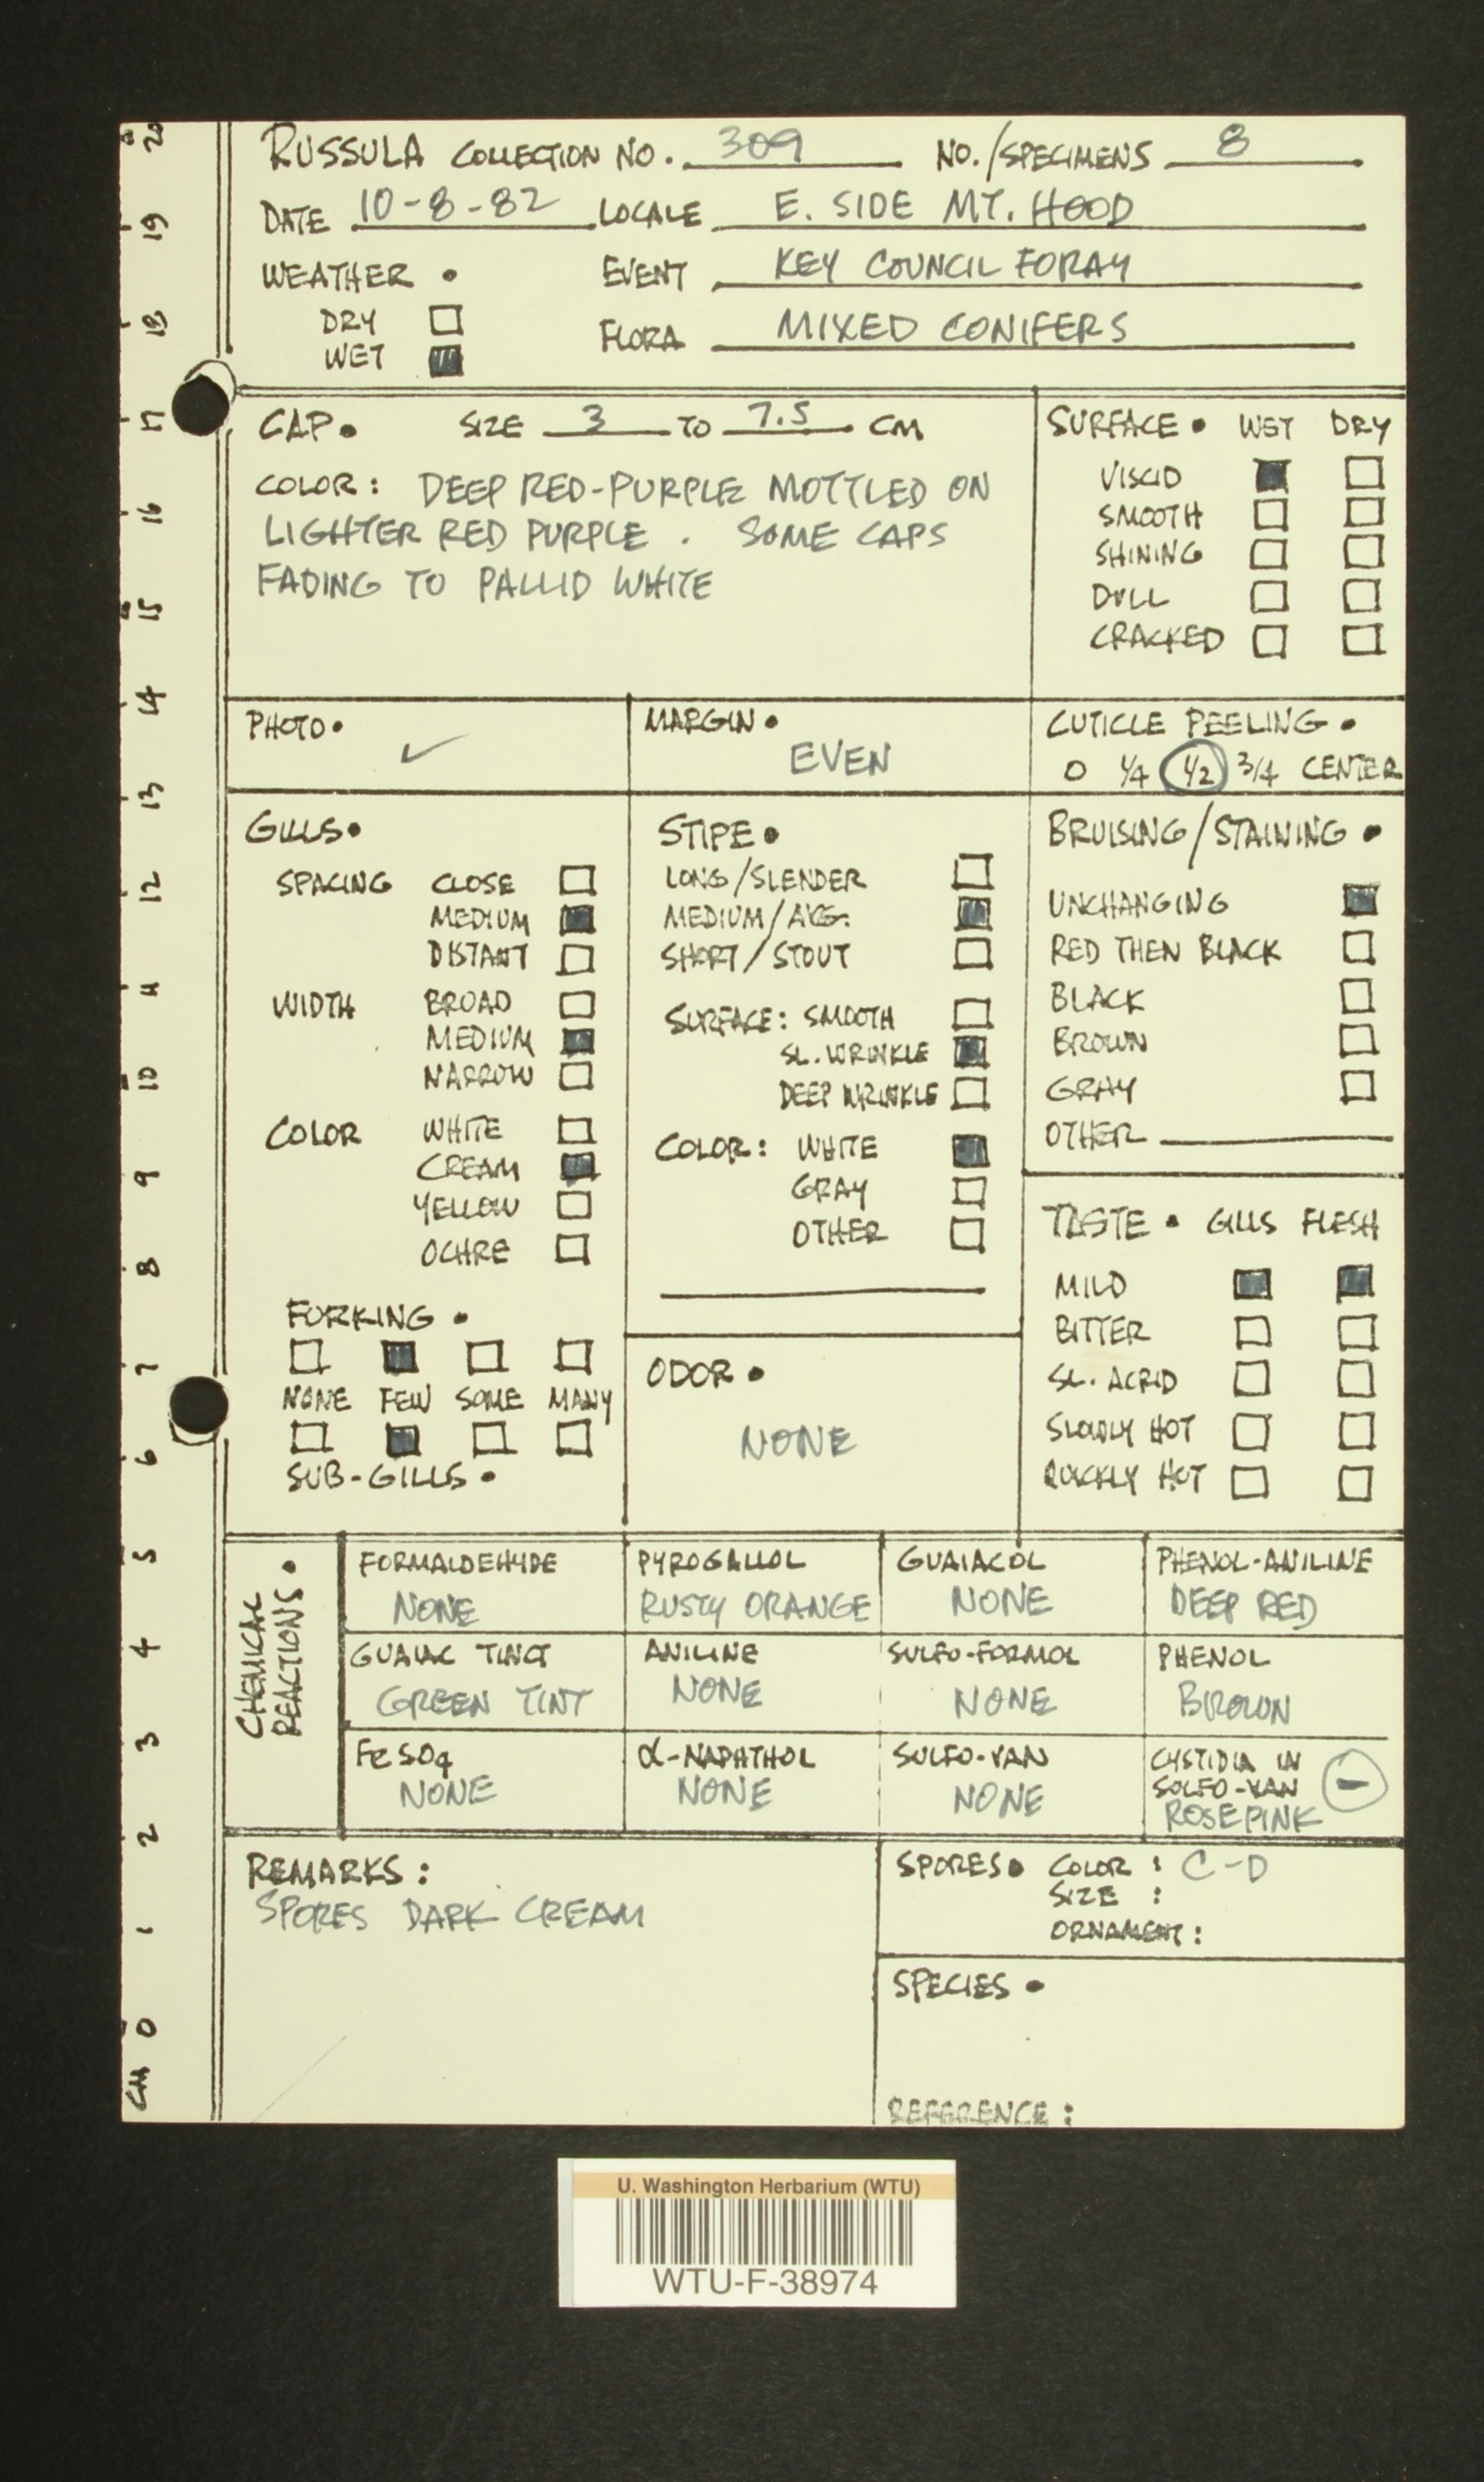 RUSSULA COLLECTION NO. 309 NO./SPECIMENS 8
DATE 10-8-82 LOCALE E. SIDE MT. HOOD
WEATHER • EVENT KEY COUNCIL FORAY
DRY ☐ FLORA MIXED CONIFERS
WET ■
CAP • SIZE 3 TO 7.5 CM
COLOR: DEEP RED-PURPLE MOTTLED ON
LIGHTER RED PURPLE . SOME CAPS
FADING TO PALLID WHITE
SURFACE • WET DRY
VISCID ■ ☐
SMOOTH ☐ ☐
SHINING ☐ ☐
DULL ☐ ☐
CRACKED ☐ ☐
PHOTO • ✓
MARGIN •
EVEN
CUTICLE PEELING •
0 1/4 1/2 3/4 CENTER
GILLS •
SPACING CLOSE ☐
MEDIUM ■
DISTANT ☐
WIDTH BROAD ☐
MEDIUM ■
NARROW ☐
COLOR WHITE ☐
CREAM ■
YELLOW ☐
OCHRE ☐
FORKING •
☐ ■ ☐ ☐
NONE FEW SOME MANY
☐ ■ ☐ ☐
SUB-GILLS •
STIPE •
LONG/SLENDER ☐
MEDIUM/AVG. ■
SHORT/STOUT ☐
SURFACE: SMOOTH ☐
SL. WRINKLE ■
DEEP WRINKLE ☐
COLOR: WHITE ■
GRAY ☐
OTHER ☐
ODOR •
NONE
BRUISING/STAINING •
UNCHANGING ■
RED THEN BLACK ☐
BLACK ☐
BROWN ☐
GRAY ☐
OTHER
TASTE • GILLS FLESH
MILD ■ ■
BITTER ☐ ☐
SL. ACRID ☐ ☐
SLOWLY HOT ☐ ☐
QUICKLY HOT ☐ ☐
CHEMICAL
REACTIONS •
FORMALDEHYDE PYROGALLOL GUAIACOL PHENOL-ANILINE
NONE RUSTY ORANGE NONE DEEP RED
GUAIAC TINCT ANILINE SULFO-FORMOL PHENOL
GREEN TINT NONE NONE BROWN
FeSO4 α-NAPHTHOL SULFO-VAN CYSTIDIA IN
SULFO-VAN –
NONE NONE NONE ROSE PINK
REMARKS:
SPORES DARK CREAM
SPORES • COLOR: C-D
SIZE :
ORNAMENT:
SPECIES •
REFERENCE:
CM 0 1 2 3 4 5 6 7 8 9 10 11 12 13 14 15 16 17 18 19 20
U. Washington Herbarium (WTU)
WTU-F-38974